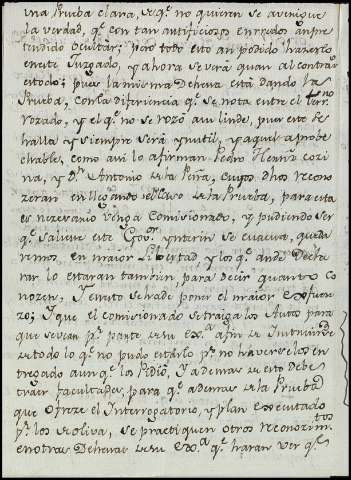 una Prueba clara, de q.e no quieren se averigue
la verdad, q.e con tan artificiosos enrredos an pre
tendido ocultar; pero todo esto an podido hazerlo
en este Juzgado, y ahora se verá quan al contrario
es todo; pues la misma Dehesa está dando la
Prueba, con la diferiencia q.e se nota entre el terr.no
Rozado, y el q.e no se rozó a su linde, pues este se
halla y siempre será ynutil, y aquel aprobe
chable, como asi lo afirman Pedro Henriz
na, y D.n Antonio de la Peña, cuyos dhos recono
zeran en llegando el caso de la Prueba, para esta
es nizesario venga Comisionado, y pudiendo ser
q.e saliese este Gov.or ynterin se evacua, queda
riamos en maior libertad y los q.e ande Decla
rar lo estaran tambien, para decir quanto co
nozen, y en esto se ha de poner el maior esfuer
zo; y que el comisionado se traiga los Autos para
que se vean p.r parte de su Ex.a a fin de Instruirse
de todo lo q.e no pudo estarlo p.r no haverselos en
tregado aunq.e los Pidió, y ademas de esto debe
traer facultades, para q.e ademas de la Prueba
que ofreze el Interrogatorio, y plan executado
p.r los de Oliva, se practiquen otros reconozim.tos
en otras Dehesas de su Ex.a q.e haran ver q.e